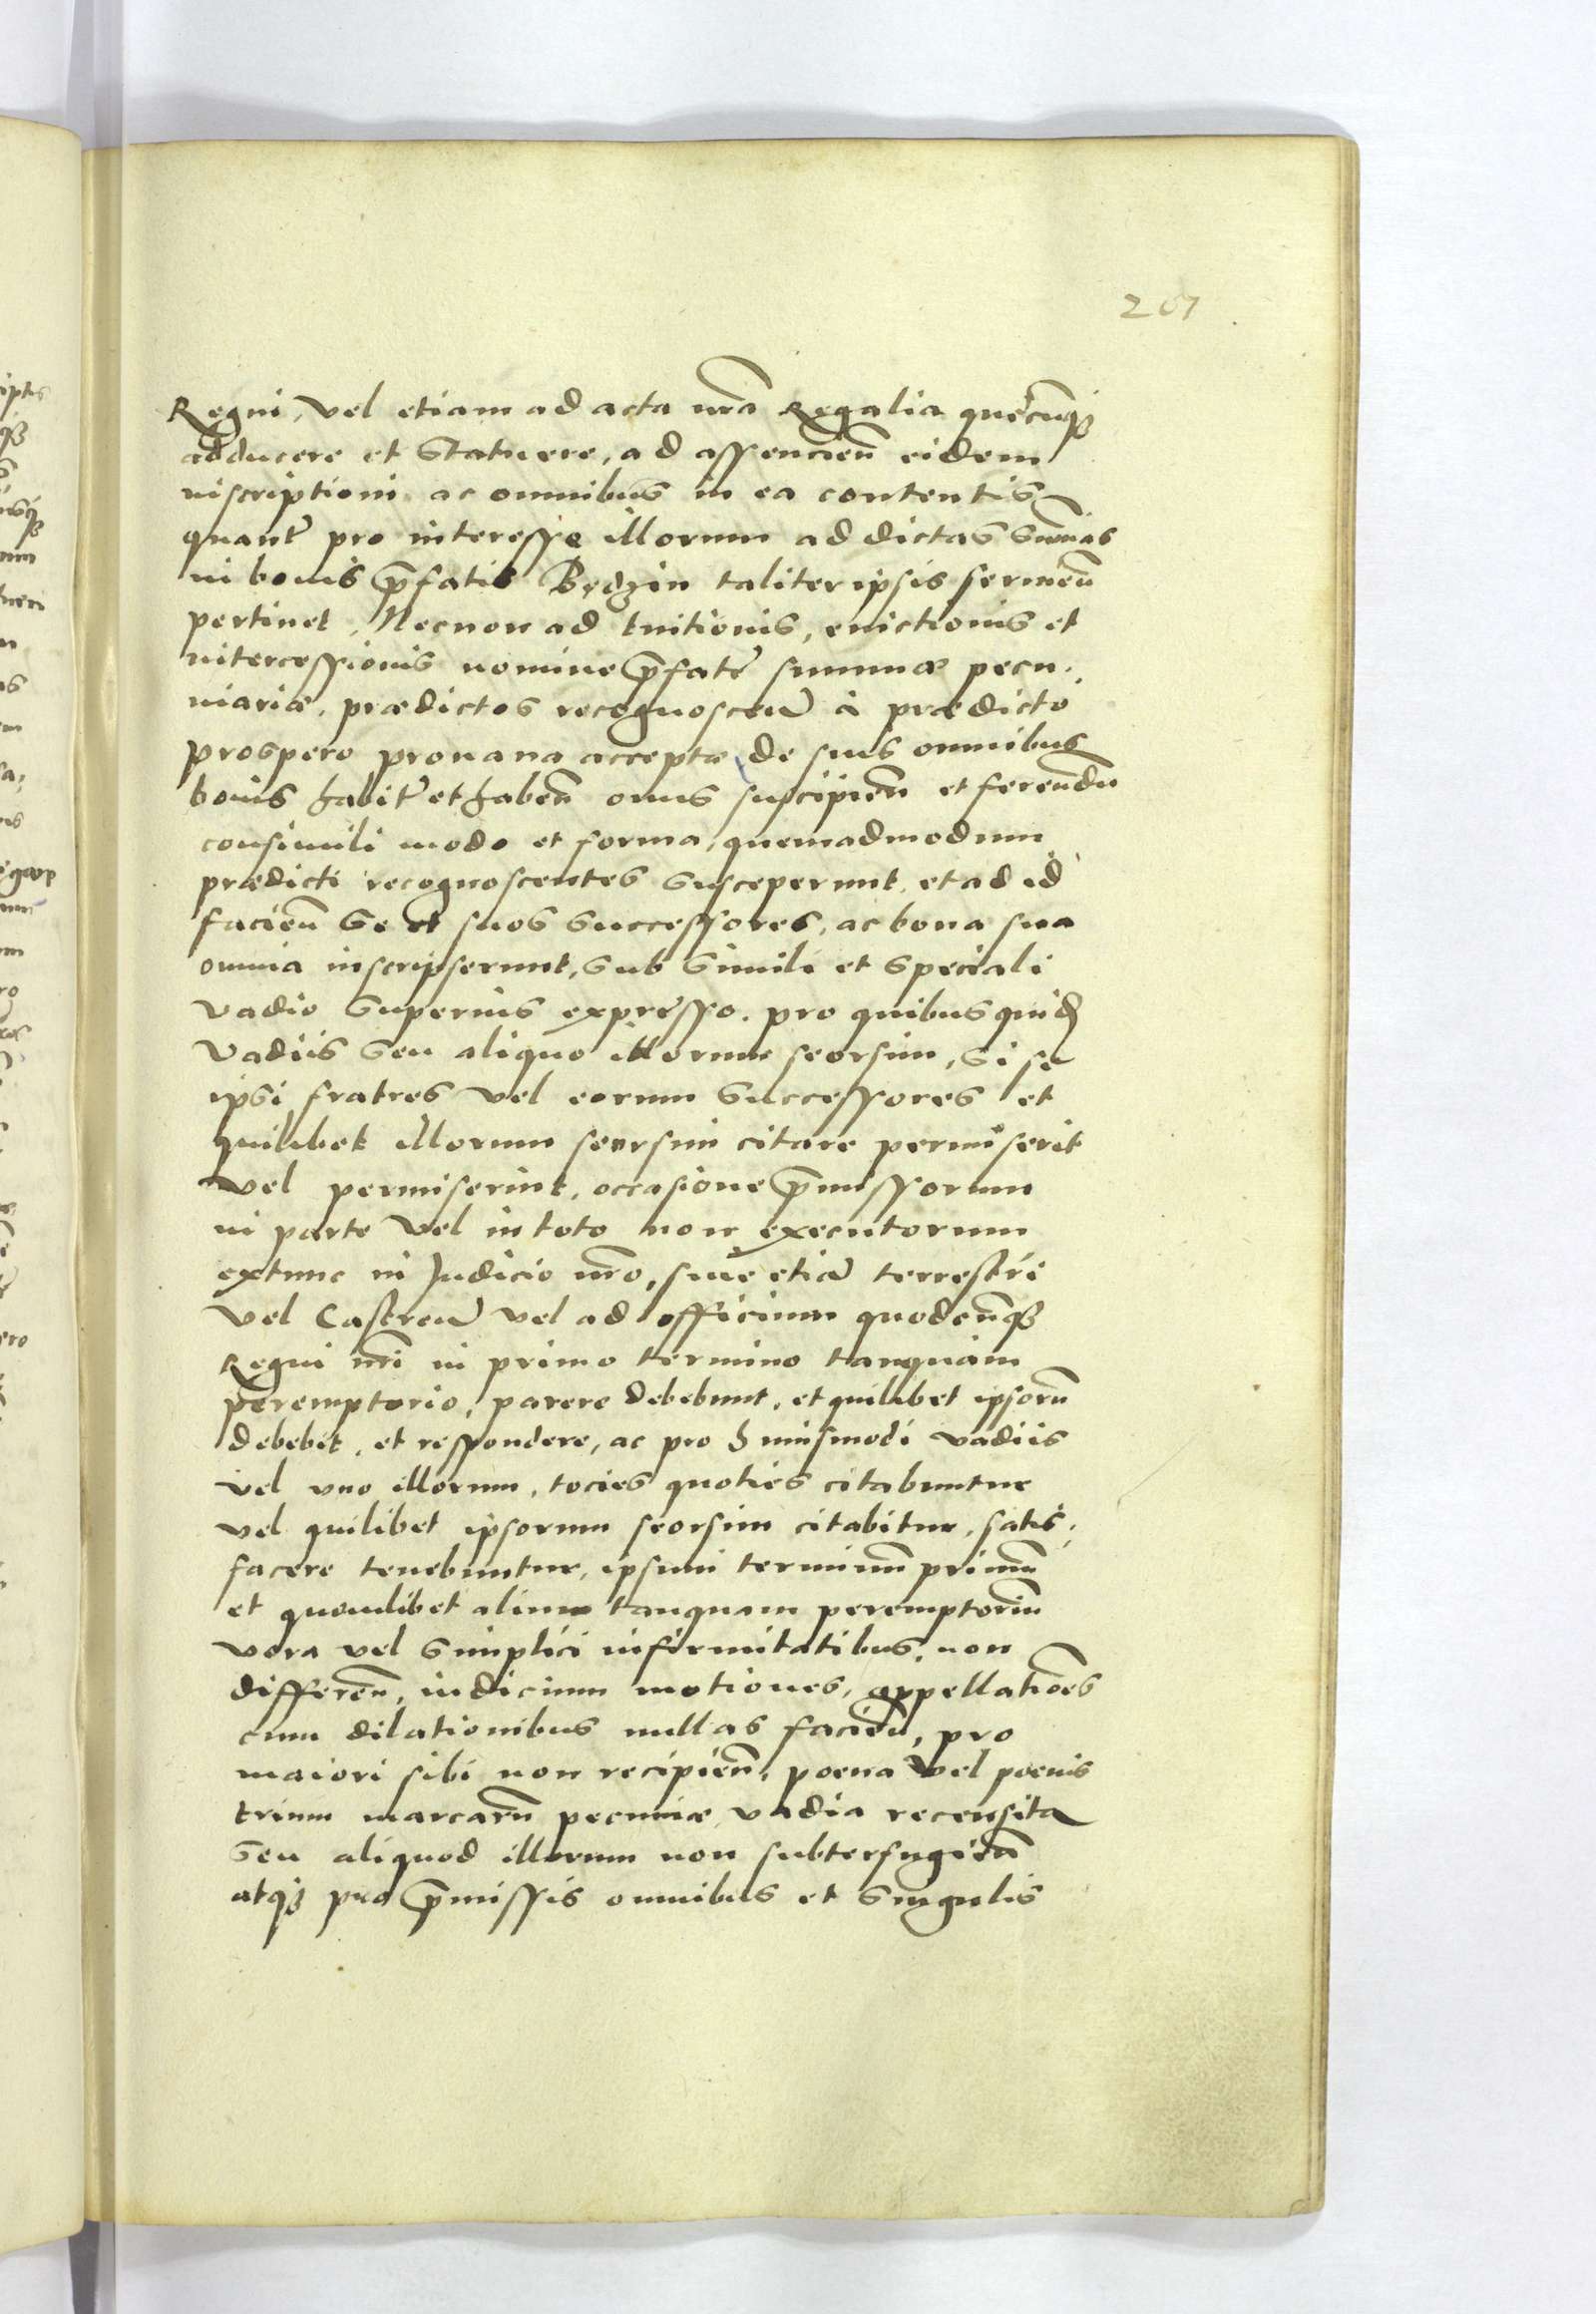 207
Regni, vel etiam ad acta nr̃a Regalia quęcũq₃
adducere et Statuere, ad assencien̄ eidem
inscriptioni ac omnibus in ea contentis
quant̃ pro interesse illorum ad dictas sum̃as
in bonis p̃fatis Będzin taliter ipsis
pertinet. Necnon ad tuitionis, evictionis et
intercessionis nomine p̃fatę summæ pecu.
niariæ, prædictos recognoscen̄ à prædicto
prospero provana acceptæ, de suis omnibus
bonis habit̃ et haben̄ onus suscipien̄ et ferendū
consimili modo et forma, quemadmodum
prædicti recognoscentes susceperunt, et ad id
facien̄ se et suos successores, ac bona sua
omnia inscripserunt, sub simili et speciali
vadio superius expresso. pro quibus quid̃
vadiis seu aliquo illorum seorsim, si se
ipsi fratres vel eorum successores et
quilibet illorum seorsim citare permiserit
vel permiserint, occasione p̃missorum
in parte vel in toto non executorum
extunc in Judicio nr̃o, sive etiā terrestri
vel Castren̄ vel ad officium quodcũq₃
Regni nr̃i in primo termino tanquam
peremptorio, parere debebunt, et quilibet ipsorū
debebit, et respondere, ac pro huiusmodi vadiis
vel uno illorum, tocies quoties citabuntur
vel quilibet ipsorum seorsim citabitur, satis,
facere tenebuntur, ipsum terminū primū
et quemlibet alium tanquam peremptoriū
vera vel simplici infirmitatibus, non
differen̄, iudicium motiones, appellatiōes
cum dilationibus nullas facien̄, pro
maiori sibi non recipien̄, poena vel poenis
trium marcarū pecuniæ, vadia recensita
seu aliquod illorum non subterfugien̄
atq₃ pro p̃missis omnibus et singulis